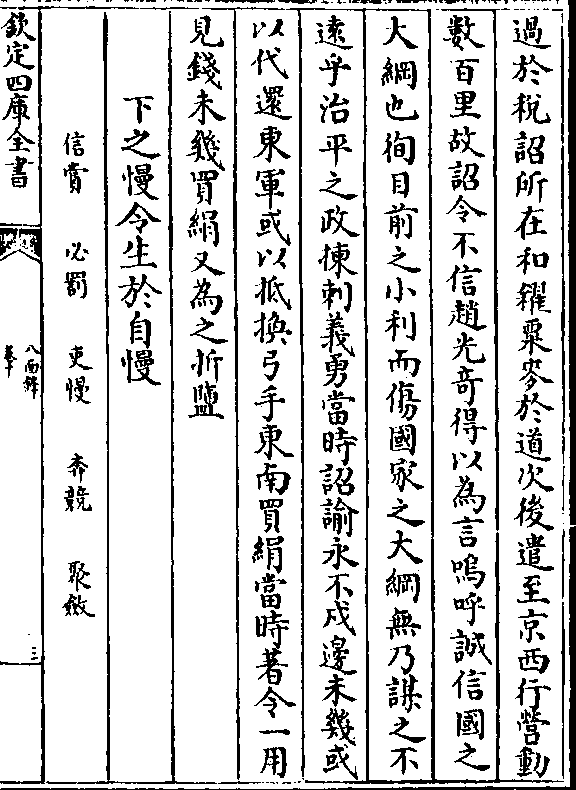 過於稅詔所在和糴粟麥於道次後遣至京西行營動
數百里故詔令不信趙光奇得以為言嗚呼誠信國之
大綱也徇目前之小利而傷國家之大綱無乃謀之不
遠乎治平之政揀刺義勇當時詔諭永不戍邊未幾或
以代還東軍或以抵換弓手東南買絹當時著令一用
見錢未幾買絹又為之折鹽
下之慢令生於自慢
信賞 必罰 吏慢 奔競 聚斂
欽定四庫全書
八面鋒
三